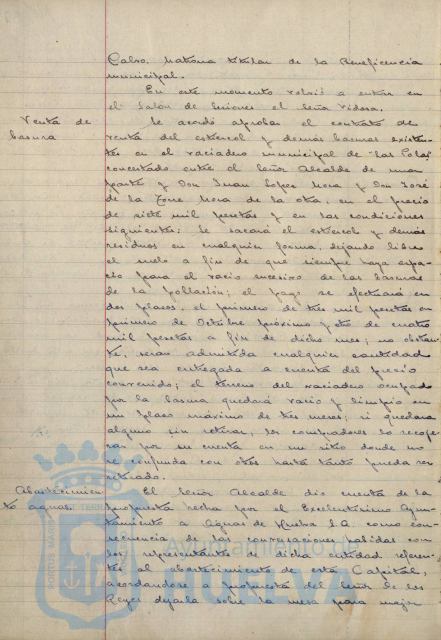 Calvo, Matrona titular de la Beneficencia
municipal.
En este momento volvió a entrar en
el Salón de Sesiones el Señor Vidosa.
Venta de
basura
Se acordó aprobar el contrato de
venta del estiercol y demás basuras existen-
tes en el vaciadero municipal de "las Colas"
concertado entre el Señor Alcalde de una
parte y Don Juan Lopez Mora y Don José
de la Torre Mora de la otra, en el precio
de siete mil pesetas y en las condiciones
siguientes: Se sacará el estiercol y demás
residuos en cualquier forma, dejando libre
el suelo a fin de que siempre haya espa-
cio para el vacio sucesivo de las basuras
de la población; el pago se efectuará en
dos plazos, el primero de tres mil pesetas en
primero de Octubre próximo y otro de cuatro
mil pesetas a fin de dicho mes; no obstan-
te, seran admitida cualquier cantidad
que sea entregada a cuenta del precio
convenido; el terreno del vaciadero ocupado
por la basura quedará vacio y limpio en
un plazo máximo de tres meses; si quedara
alguno sin retirar, los compradores lo recoge-
ran por su cuenta en un sitio donde no
se confunda con otros hasta tanto pueda ser
retirado.
Abastecimien-
to aguas.
El Señor Alcalde dio cuenta de la
propuesta hecha por el Excelentísimo Ayun-
tamiento a Aguas de Huelva S.A. como con-
secuencia de las conversaciones habidas con
los representantes de dicha entidad referen-
tes al abastecimiento de esta Capital,
acordandose a propuesta del Señor de los
Reyes dejarla sobre la mesa para mejor
PORTUS MARIS
Ayuntamiento de
HUELVA